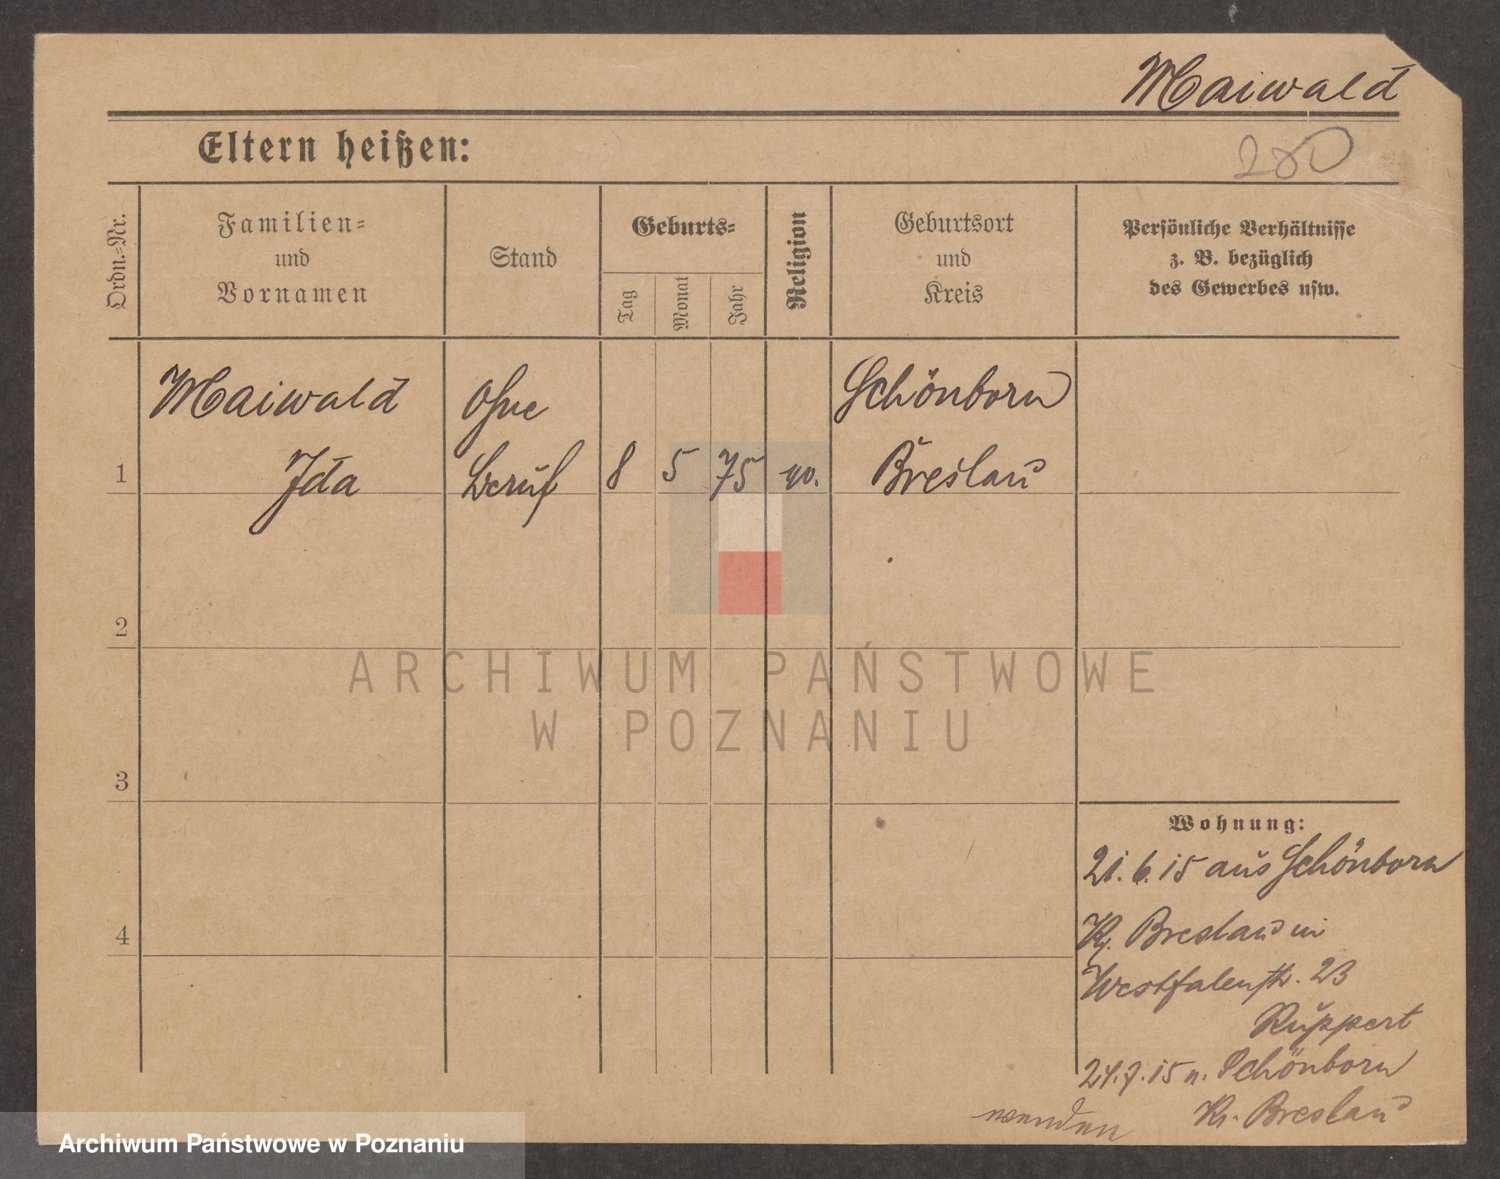 Maiwald
Eltern heißen:
280
Ordn.-Nr.
Familien-
und
Vornamen
Stand
Geburts-
Tag
Monat
Jahr
Religion
Geburtsort
und
Kreis
Persönliche Verhältnisse
z. B. bezüglich
des Gewerbes usw.
Maiwald
ohne
Schönborn
1
Ida
Beruf
8
5
75
ev.
Breslau
2
3
4
Wohnung:
21.6.15 aus Schönborn
Kr. Breslau in
Westfalenstr. 23
Ruppert
24.7.15 n. Schönborn
Kr. Breslau
wenden
ARCHIWUM PAŃSTWOWE
W POZNANIU
Archiwum Państwowe w Poznaniu